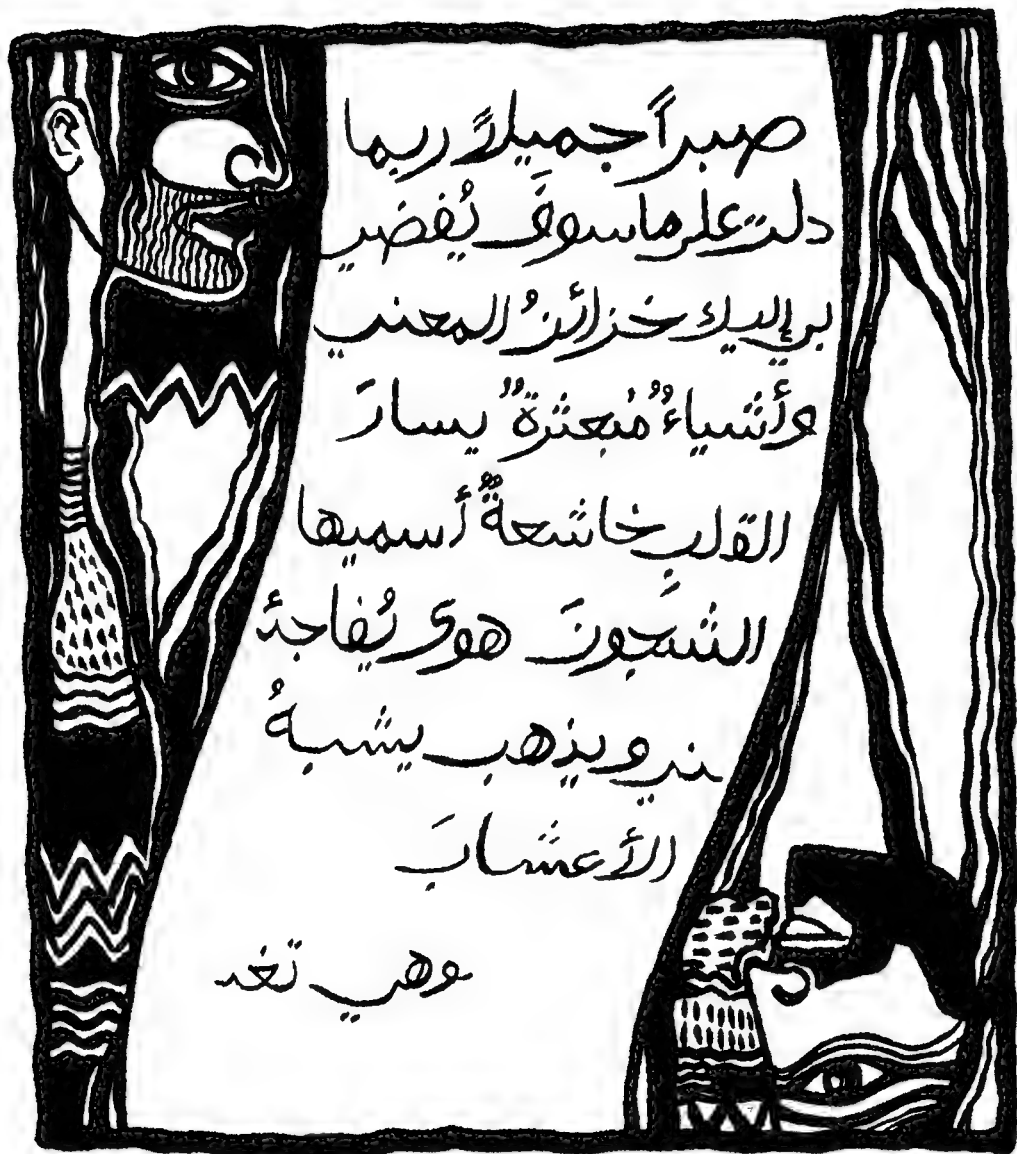 صبراً جميلاً ربما
دلت على ما سوفَ يُفضي
بي إليك خزائنُ المعنى
وأشياءٌ مُبعثرةٌ يسارَ
القلبِ خاشعةٌ أسميها
الشجونَ هوى يُفاجئ
ني ويذهب يشبهُ
الأعشابَ
وهي تغد